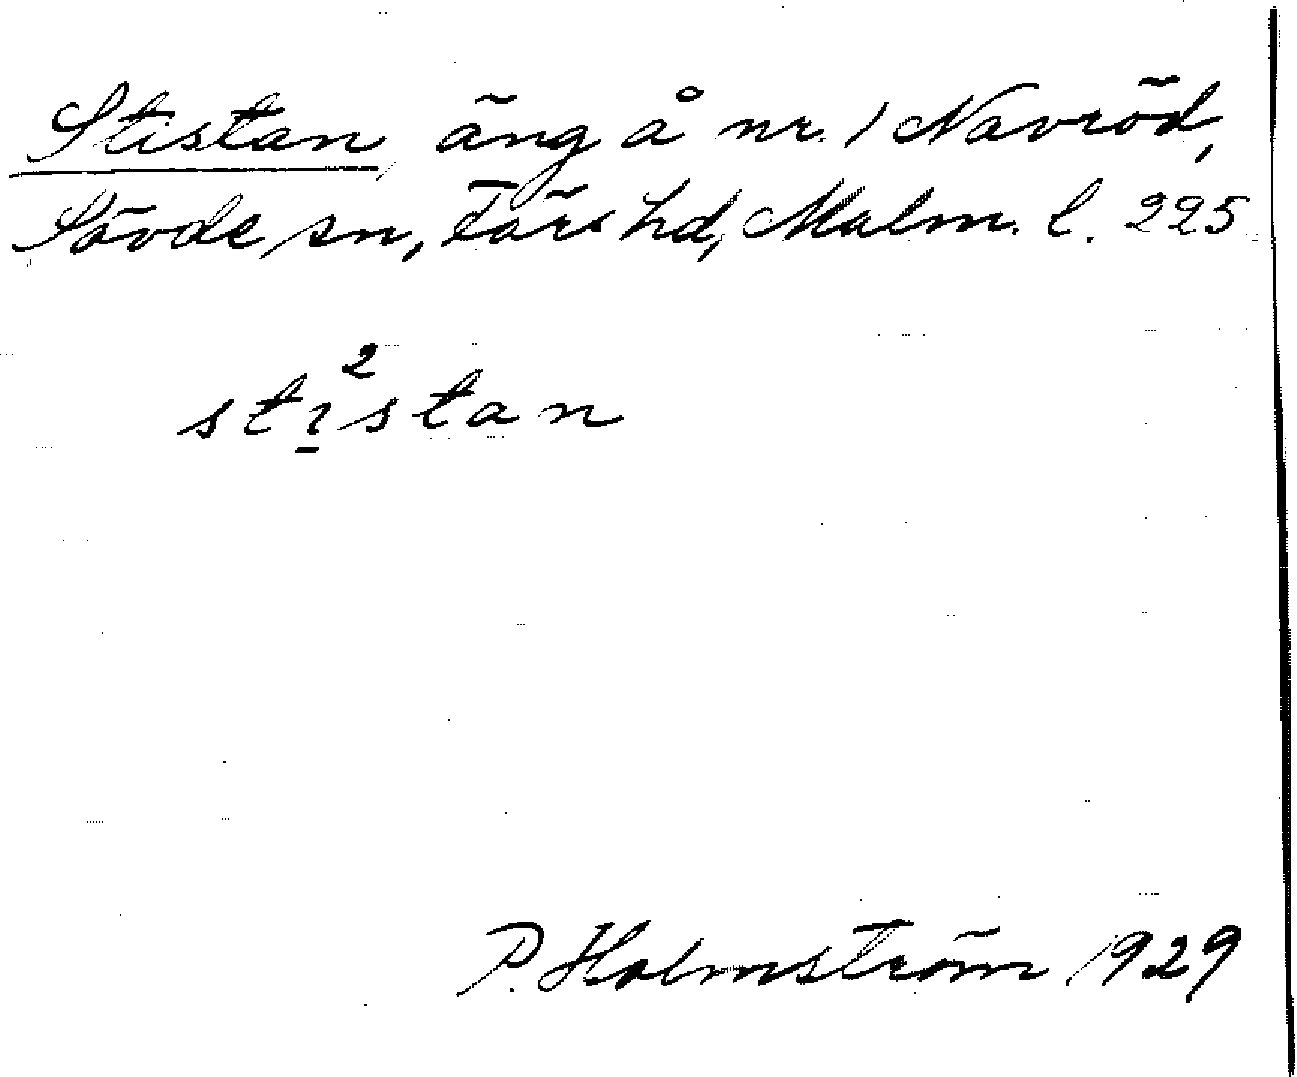 Stistan, äng å nr. 1 Navröd,
Sövde sn, Färs hd, Malm. l. 225
stı̱²stan
P. Holmström 1929